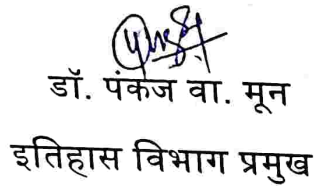 डॉ. पंकज वा. मून
इतिहास विभाग प्रमुख